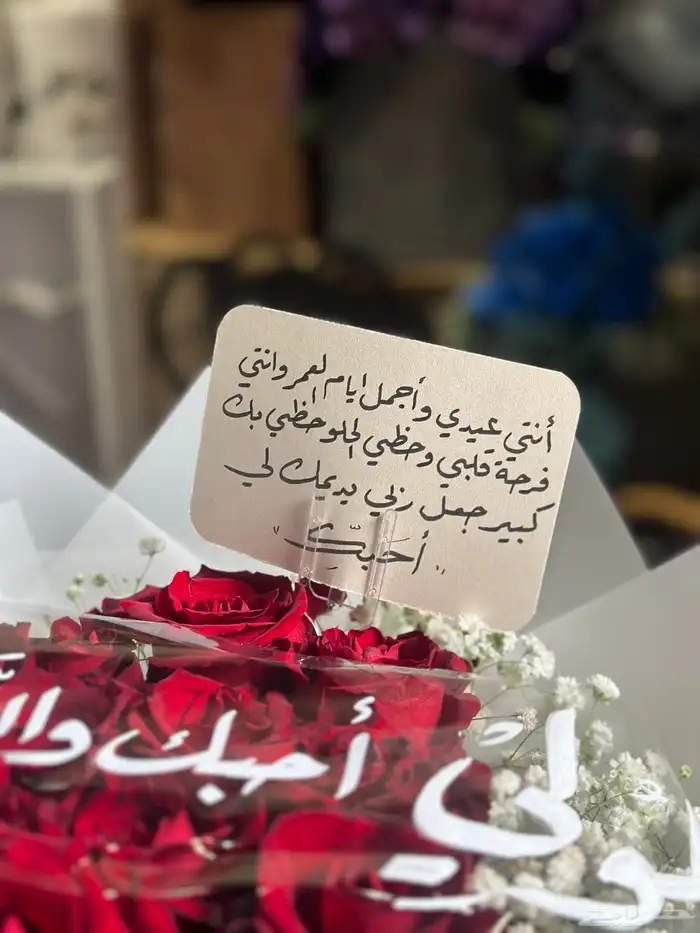 أنتي عيدي وأجمل ايام العمر وانتي
فرحة قلبي وحظي الحلو حظي بك
كبير جعل ربي يديمك لي
"أحبّك"
أحبك